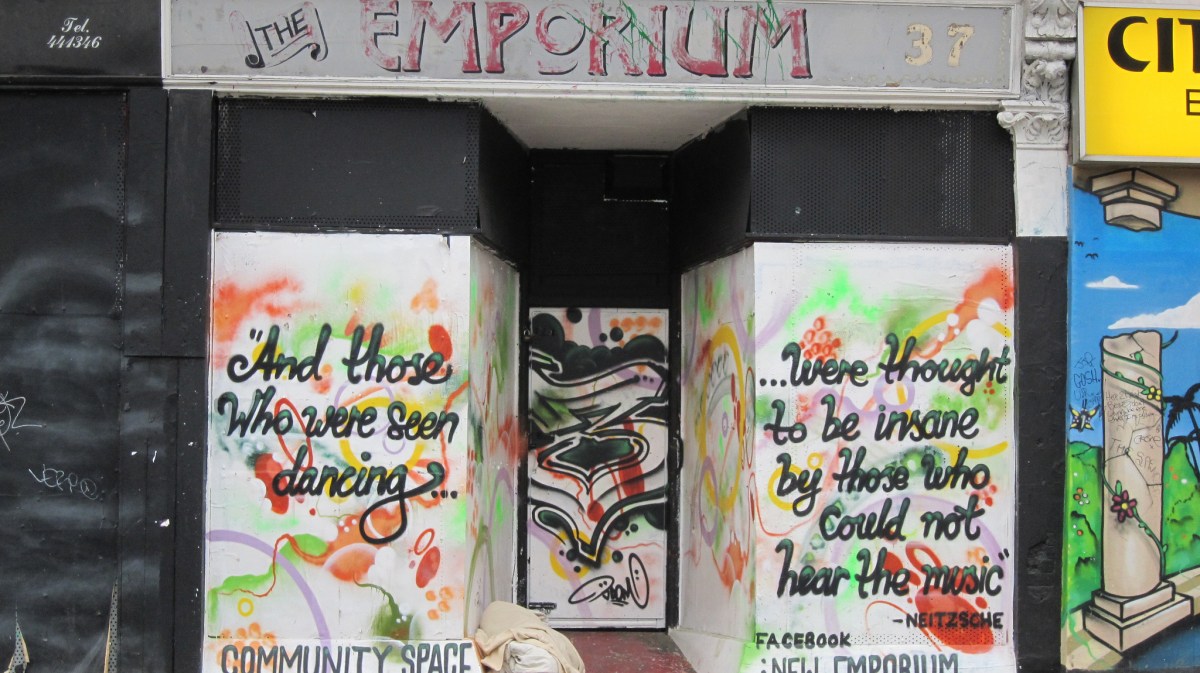 Tel.
441346
THE
EMPORIUM
37
CIT
E
"And those
Who were seen
dancing...
...were thought
to be insane
by those who
could not
hear the music"
-NEITZSCHE
COMMUNITY SPACE
FACEBOOK
:NEW EMPORIUM